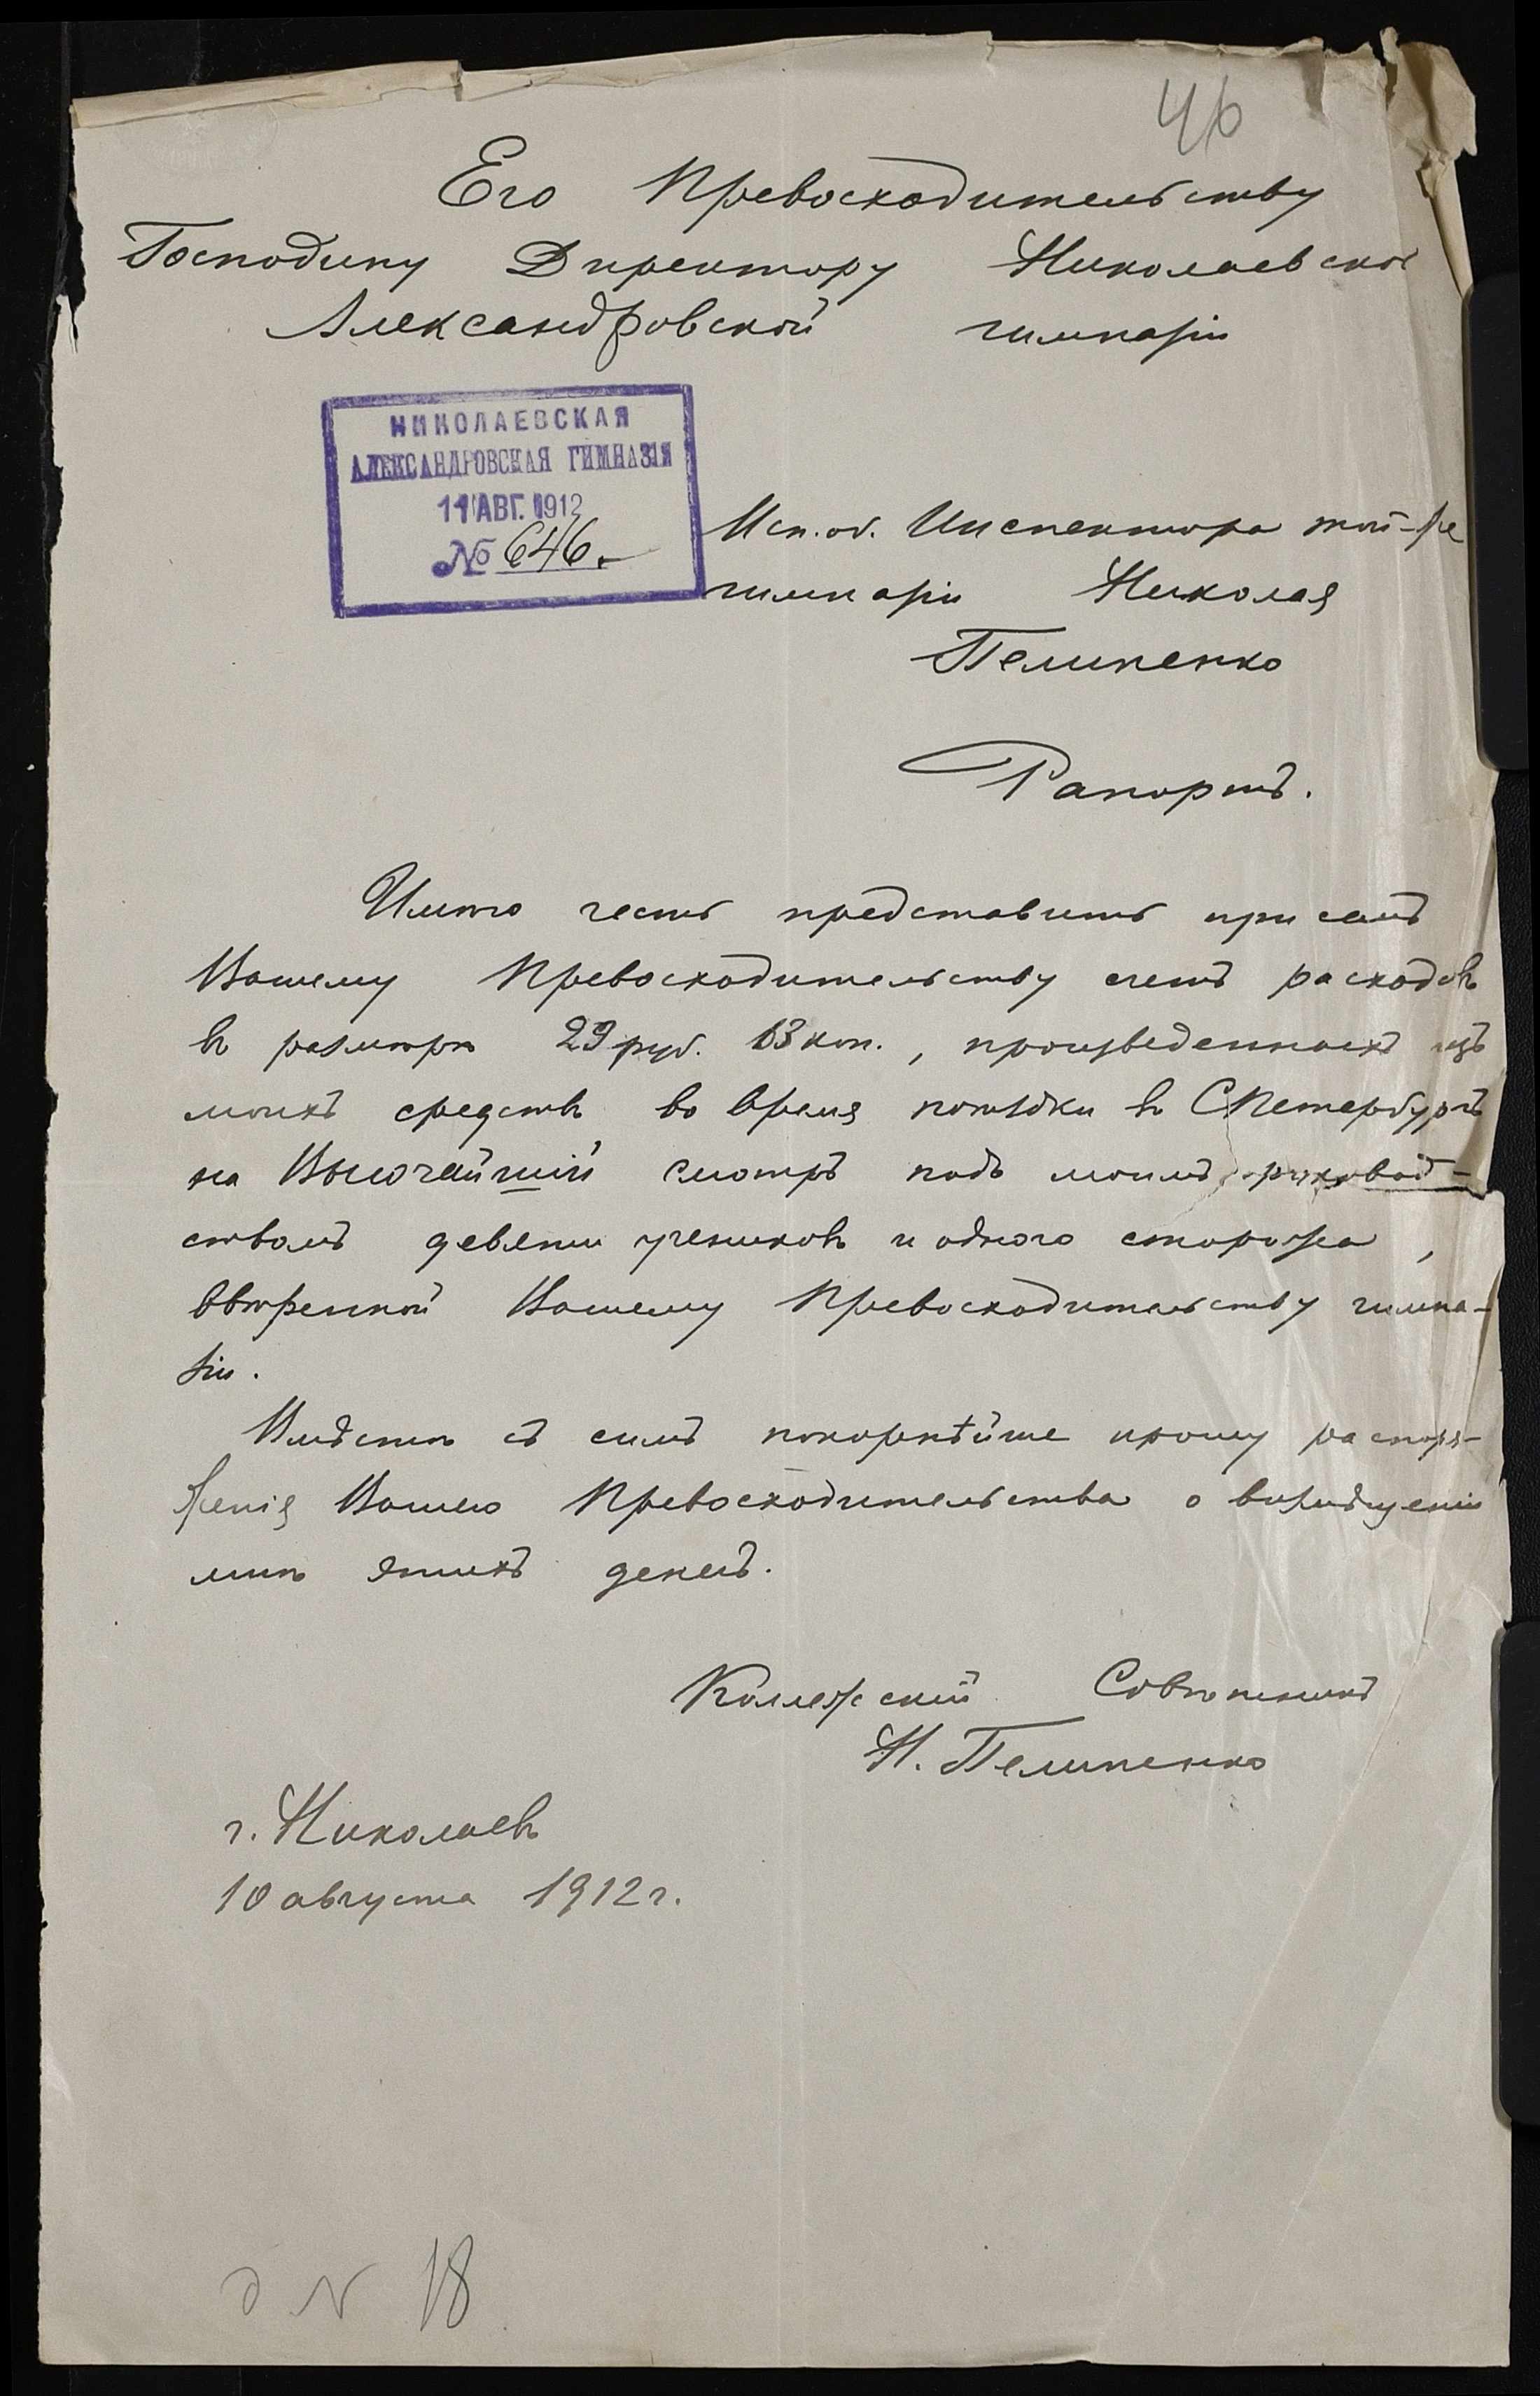 46
Его Превосходительству
Господину Директору Николаевской
Александровской гимназіи
НИКОЛАЕВСКАЯ
АЛЕКСАНДРОВСКАЯ ГИМНАЗІЯ
11 АВГ. 1912
№ 646.
Исп. об. Инспектора той-же
гимназіи Николая
Пелипенко
Рапортъ.
Имѣю честь представить при семъ
Вашему Превосходительству счетъ расходовъ
въ размѣрѣ 29 руб. 13 коп., произведенныхъ изъ
моихъ средствъ во время поѣздки въ СПетербургъ
на Высочайшій смотръ подъ моимъ руковод-
ствомъ девяти учениковъ и одного сторожа,
ввѣренной Вашему Превосходительству гимна-
зіи.
Вмѣстѣ съ симъ покорнѣйше прошу распоря-
женія Вашего Превосходительства о возмѣщеніи
мнѣ этихъ денегъ.
Коллежскій Совѣтникъ
Н. Пелипенко
г. Николаевъ
10 августа 1912 г.
д N 18